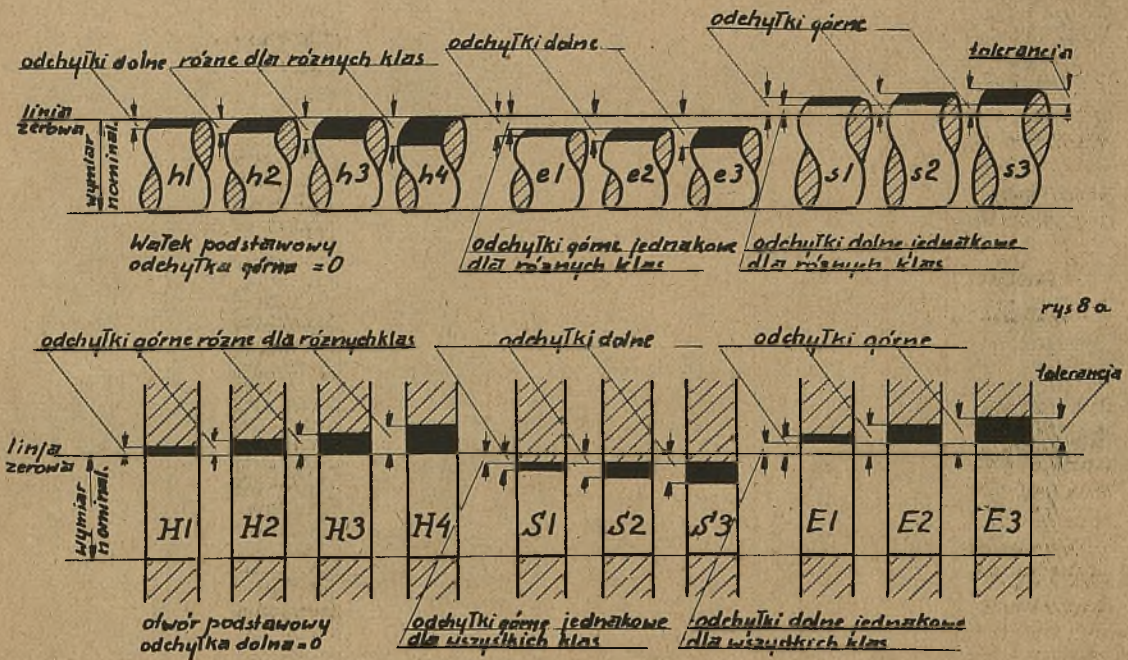 odchyłki dolne różne dla różnych klas
odchyłki dolne
odchyłki górne
tolerancja
linia
zerowa
wymiar
nominal.
h1
h2
h3
h4
e1
e2
e3
s1
s2
s3
Wałek podstawowy
odchyłka górna = 0
odchyłki górne jednakowe
dla różnych klas
odchyłki dolne jednakowe
dla różnych klas
rys 8 a
odchyłki górne różne dla różnych klas
odchyłki dolne
odchyłki górne
tolerancja
linja
zerowa
wymiar
nominal.
H1
H2
H3
H4
S1
S2
S3
E1
E2
E3
otwór podstawowy
odchyłka dolna = 0
odchyłki górne jednakowe
dla wszystkich klas
odchyłki dolne jednakowe
dla wszystkich klas